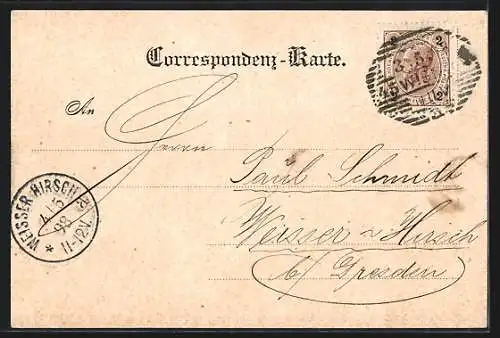 Correspondenz-Karte.
An
Herrn
Paul Schmidt
Weisser-Hirsch
b/ Dresden
WEISSER HIRSCH
4/5
98
11-12V.